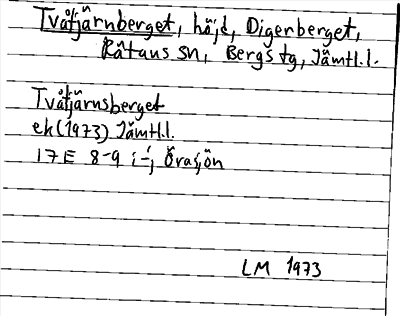 Tvåtjärnberget, höjd, Digerberget,
Rätans sn, Bergs tg, Jämtl.l.
Tvåtjärnsberget
ek (1973) Jämtl.l.
17E 8-9 i-j Öräsjön
LM 1973